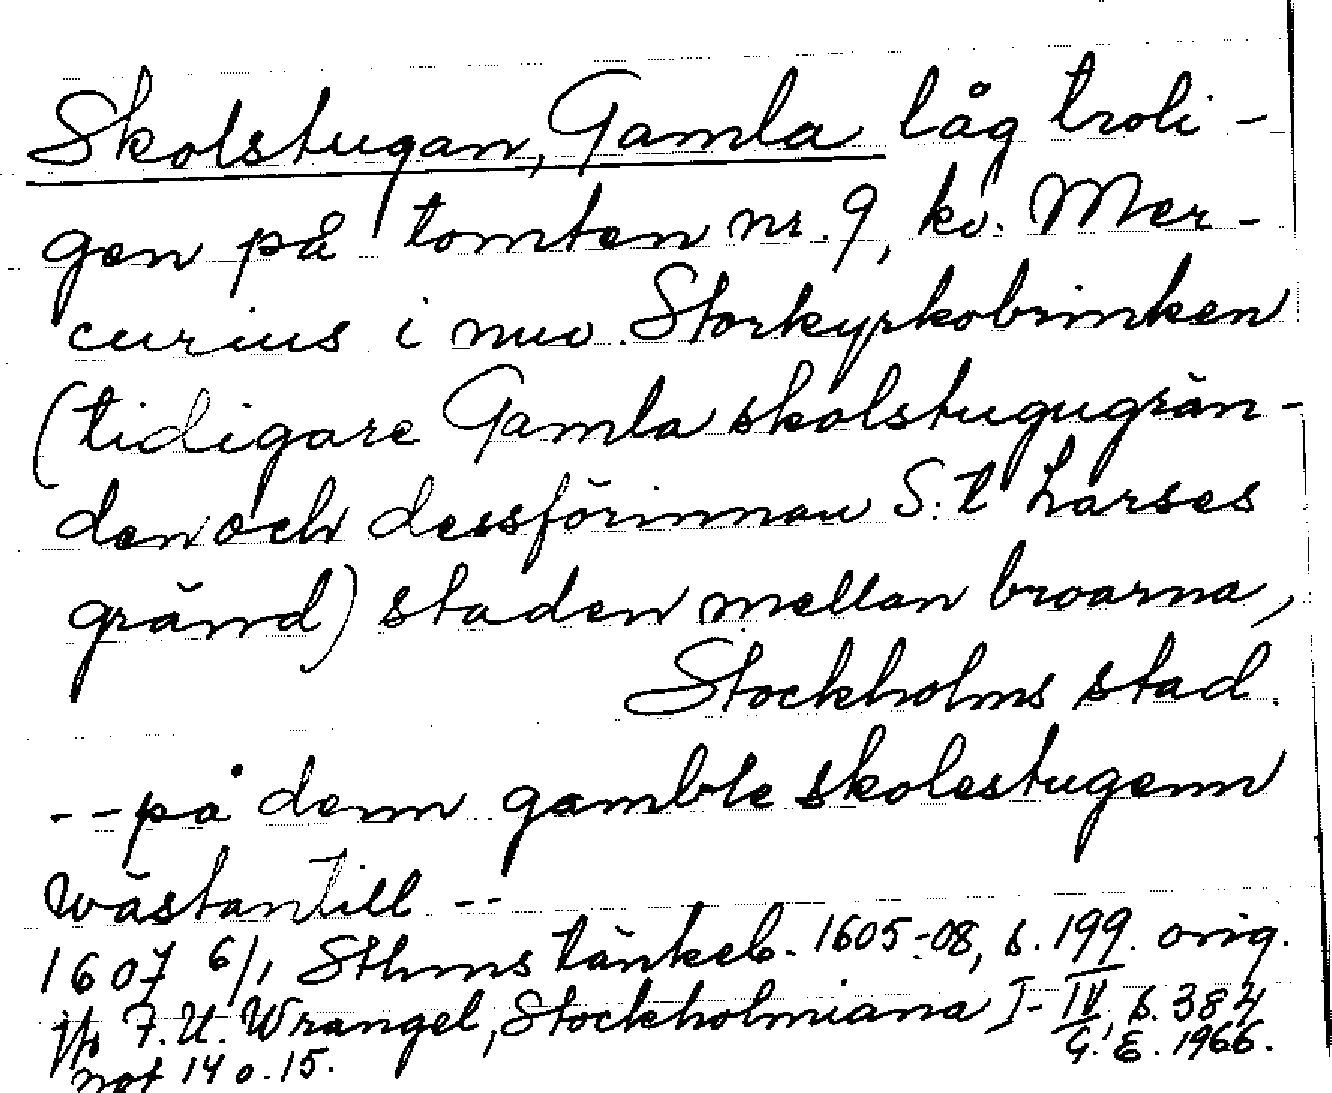 Skolstugan, Gamla låg troli-
gen på tomten nr. 9, kv. Mer-
curius i nuv. Storkyrkobrinken
(tidigare Gamla skolstugugrän-
den och dessförinnan S:t Larses
gränd) staden mellan broarna,
Stockholms stad.
--på denn gamble skolestugenn
wästantill --
1607 6/1, Sthms tänkeb. 1605-08, s. 199. orig.
jfr F.U. Wrangel, Stockholmiana I-IV, s. 384
not 14 o. 15.
G. E. 1966.